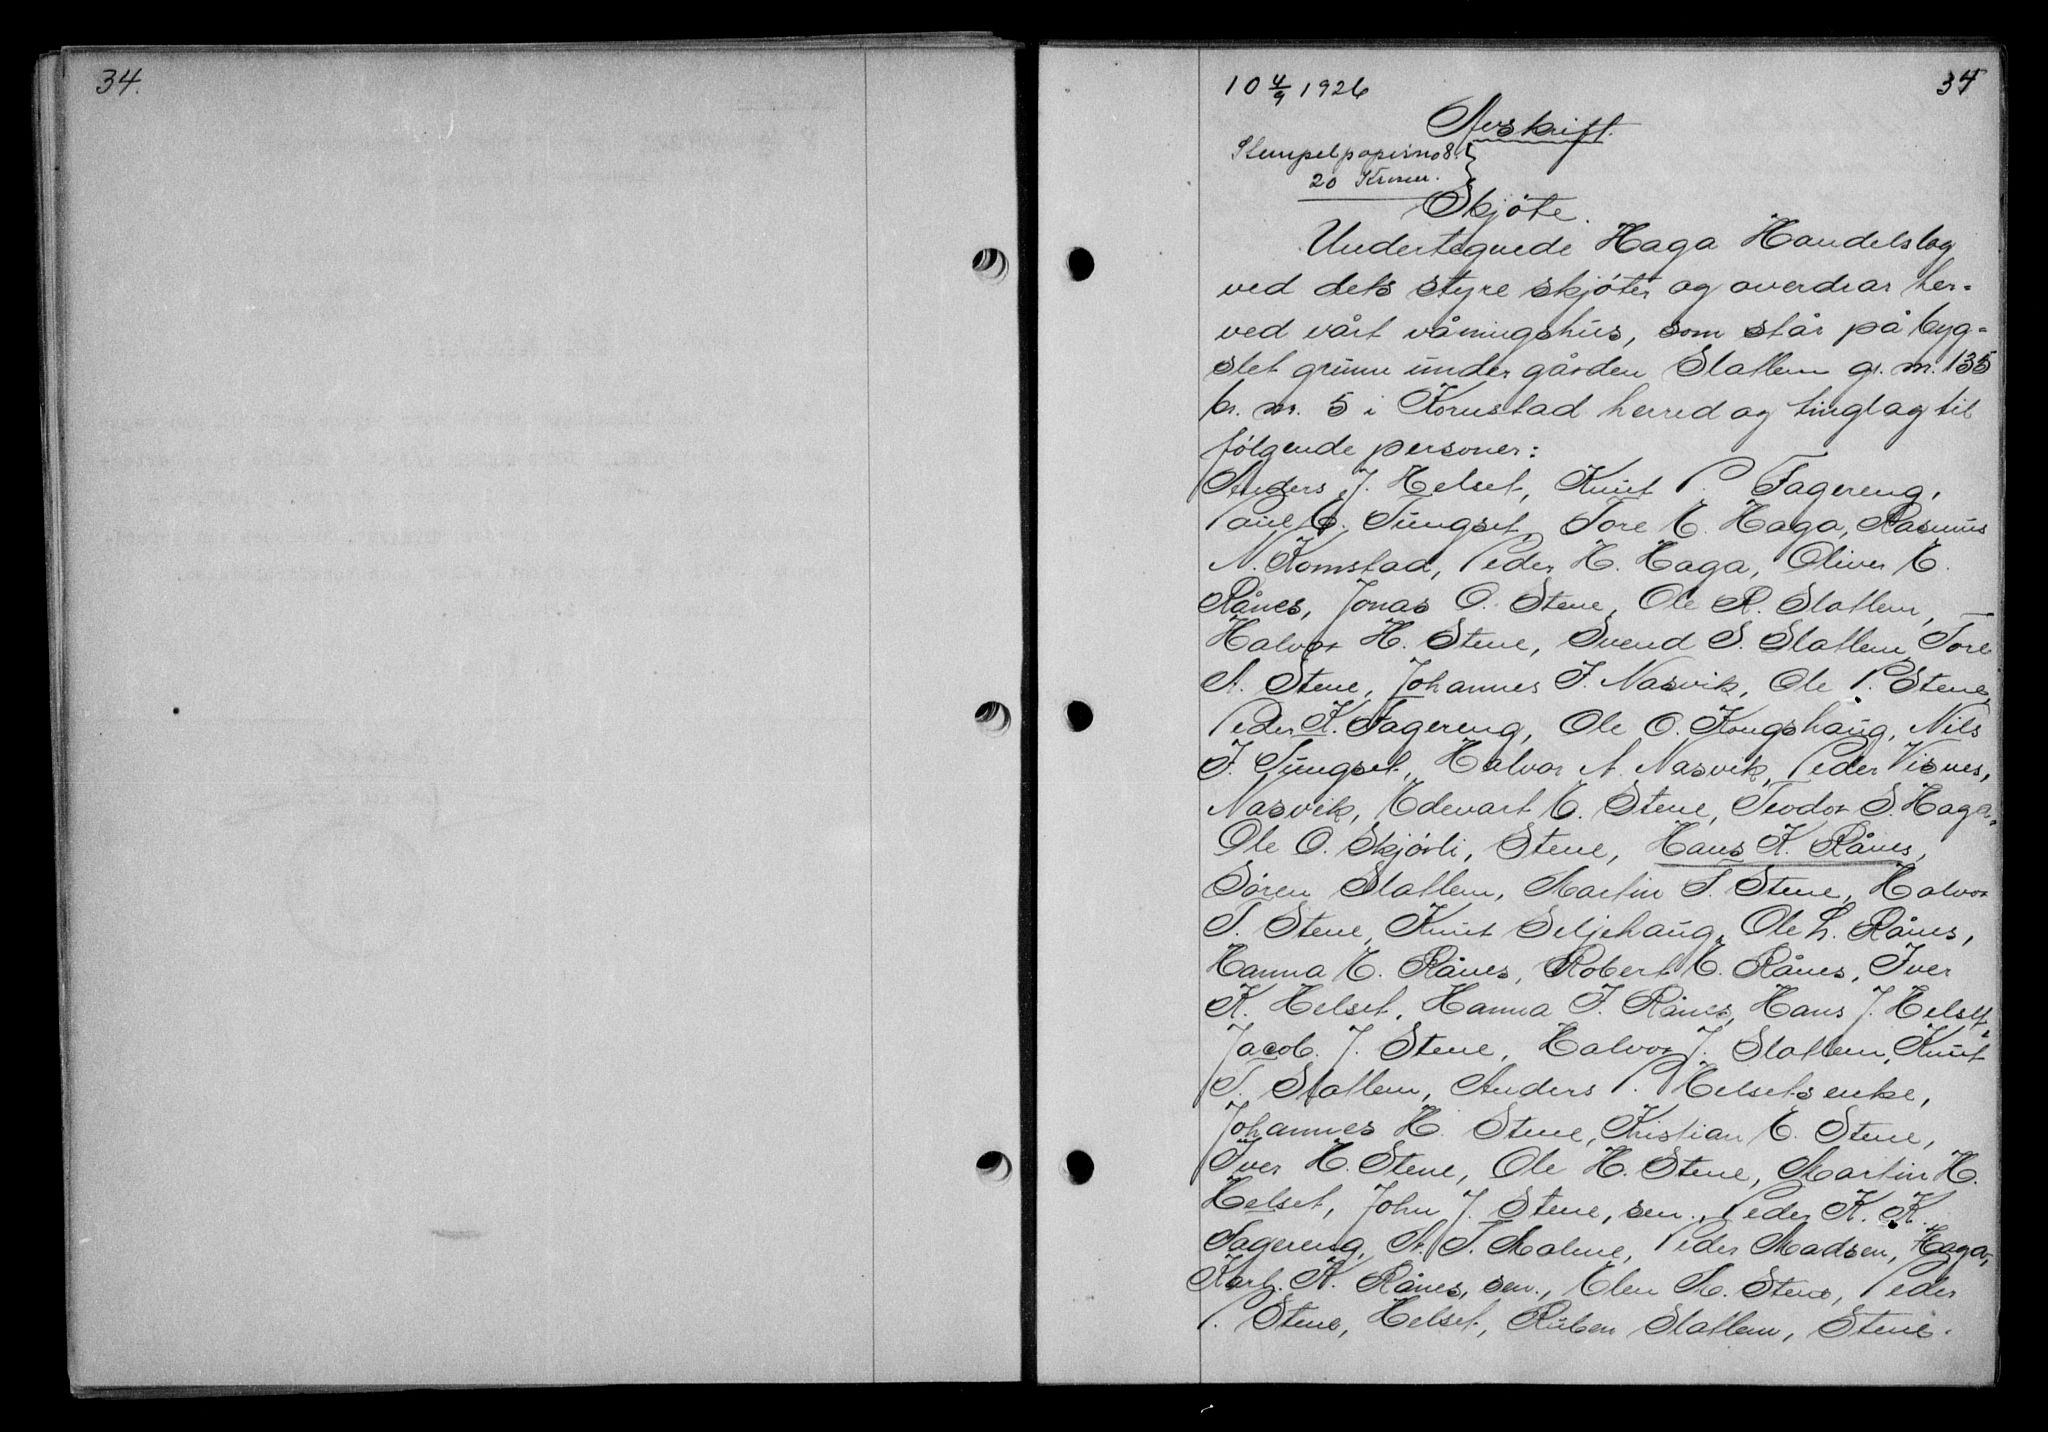 34.
10 4/9 1926
34
Avskrift.
Stempelpapir no 8.
20 Kroner.
Skjøte.
Undertegnede Haga Handelslag
ved dets styre skjøter og overdrar her-
ved vårt våningshus, som står på byg-
slet grunn under gården Slatlem gr. nr. 135
br. nr. 5 i Kornstad herred og tinglag til
følgende personer:
Anders J. Helset, Knut P. Fagereng,
Paul E. Tungset, Tore E. Haga, Rasmus
N. Komstad, Peder H. Haga, Oliver E.
Rånes, Jonas O. Stene, Ole R. Slatlem,
Halvor H. Stene, Svend S. Slatlem, Tore
A. Stene, Johannes J. Nasvik, Ole P. Stene,
Peder K. Fagereng, Ole O. Kongshaug, Nils
J. Tungset, Halvor A. Nasvik, Peder Visnes,
Nasvik, Edevart E. Stene, Teodor S. Haga,
Ole O. Skjøvli, Stene, Hans K. Rånes,
Søren Slatlem, Martin T. Stene, Halvor
T. Stene, Knut Seljehaug, Ole L. Rånes,
Hanna E. Rånes, Robert E. Rånes, Iver
K. Helset, Hanna I. Rånes, Hans J. Helset,
Jacob. J. Stene, Halvor J. Slatlem, Knut
S. Slatlem, Anders P. Helsets enke,
Johannes H. Stene, Kristian E. Stene,
Iver H. Stene, Ole H. Stene, Martin H.
Helset, John J. Stene, sen., Peder K. K.
Fagereng, A. T. Malme, Peder Madsen, Haga,
Karl K. Rånes, sen., Elen M. Stene, Peder
P. Stene, Helset, Ruben Slatlem, Stene.